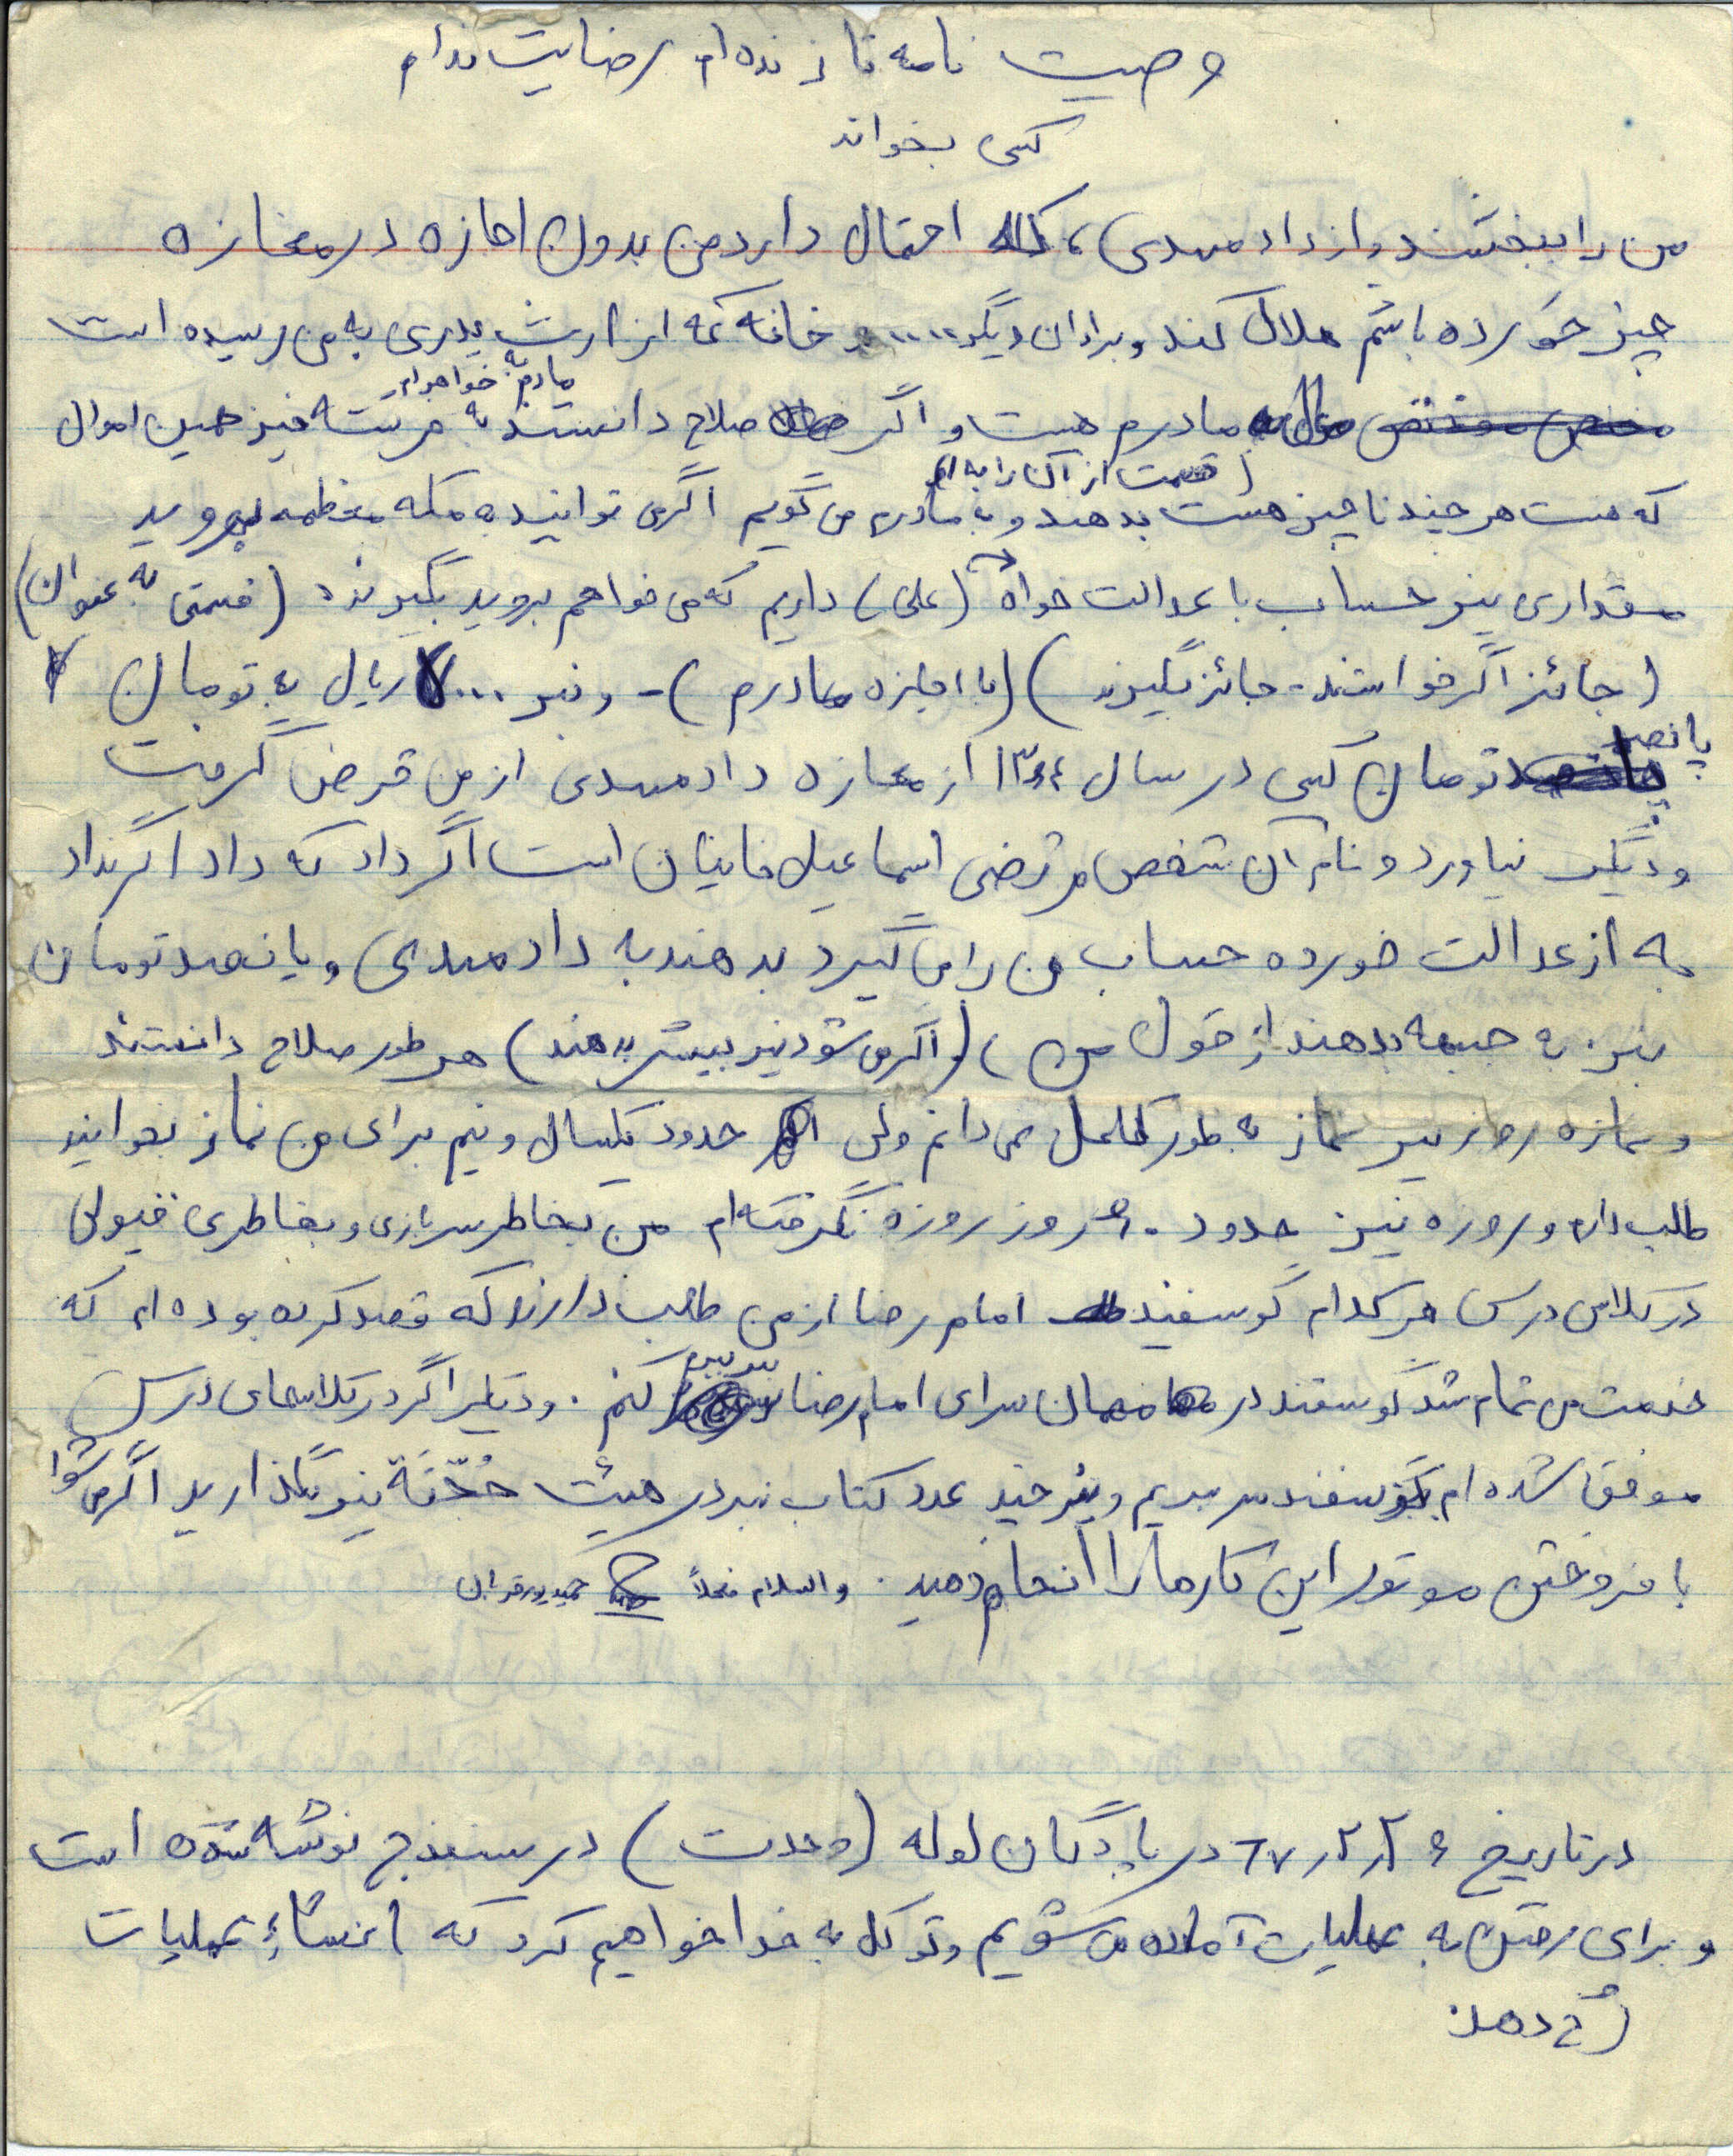 وصیت نامه تا زنده ام رضایت ندارم
کسی بخواند
من را ببخشند و از داد مهدی، که احتمال دارد من بدون اجازه در مغازه
چیز خورده باشم حلال کند و برادران دیگر ..... و خانه که از ارث پدری به من رسیده است
مادرم به خواهرام
مادرم هست و اگر صلاح دانستند به فرشته نیز همین اموال
قسمت از آن را به او
که هست هر چند ناچیز هست بدهند و به مادرم می گویم اگر می توانید به مکه معظمه بروید
مقداری نیز حساب با عدالت خواه (علی) داریم که می خواهم بروید بگیرند (قسمتی به عنوان)
(جائز اگر خواستند - جائز بگیرند) (با اجازه مادرم) - و نیز ۷۰۰۰ ریال به تومان
پانصد
تومان کسی در سال ۱۳۶۴ از مغازه داد مهدی از من قرض گرفت
و دیگر نیاورد و نام آن شخص مرتضی اسماعیل خانیان است اگر داد که داد اگر نداد
به از عدالت خورده حساب من را می گیرد بدهند به داد مهدی و پانصد تومان
نیز به جبهه بدهند از قول من، (و اگر می شود نیز بیشتر بدهند) هر طور صلاح دانستند
و نماز روزه نیز نماز به طور کامل نمی دانم ولی حدود یکسال و نیم برای من نماز بخوانید
طلب دارم و روزه نیز حدود ۶۰ روز روزه نگرفته ام من بخاطر سربازی و بخاطری قبولی
در کلاس درس هر کدام گوسفند امام رضا از من طلب دارند که قصد کرده بوده ام که
خدمت من تمام شد گوسفند در مهمان سرای امام رضا سر ببرم کنم. و دیگر اگر در کلاسهای درس
موفق شده ام گوسفند سر ببریم و نیز چند عدد کتاب نیز در هیئت حُجّتة نیز بگذارید اگر می شود
با فروختن موتور این کارها را انجام دهید. والسلام فعلاً حمید
در تاریخ ۶۷٫۲٫۲۶ در پادگان لوله (وحدت) در سنندج نوشته شده است
و برای رفتن به عملیات آماده می شویم و توکل به خدا خواهیم کرد که انشاء عملیات
رُخ دهد